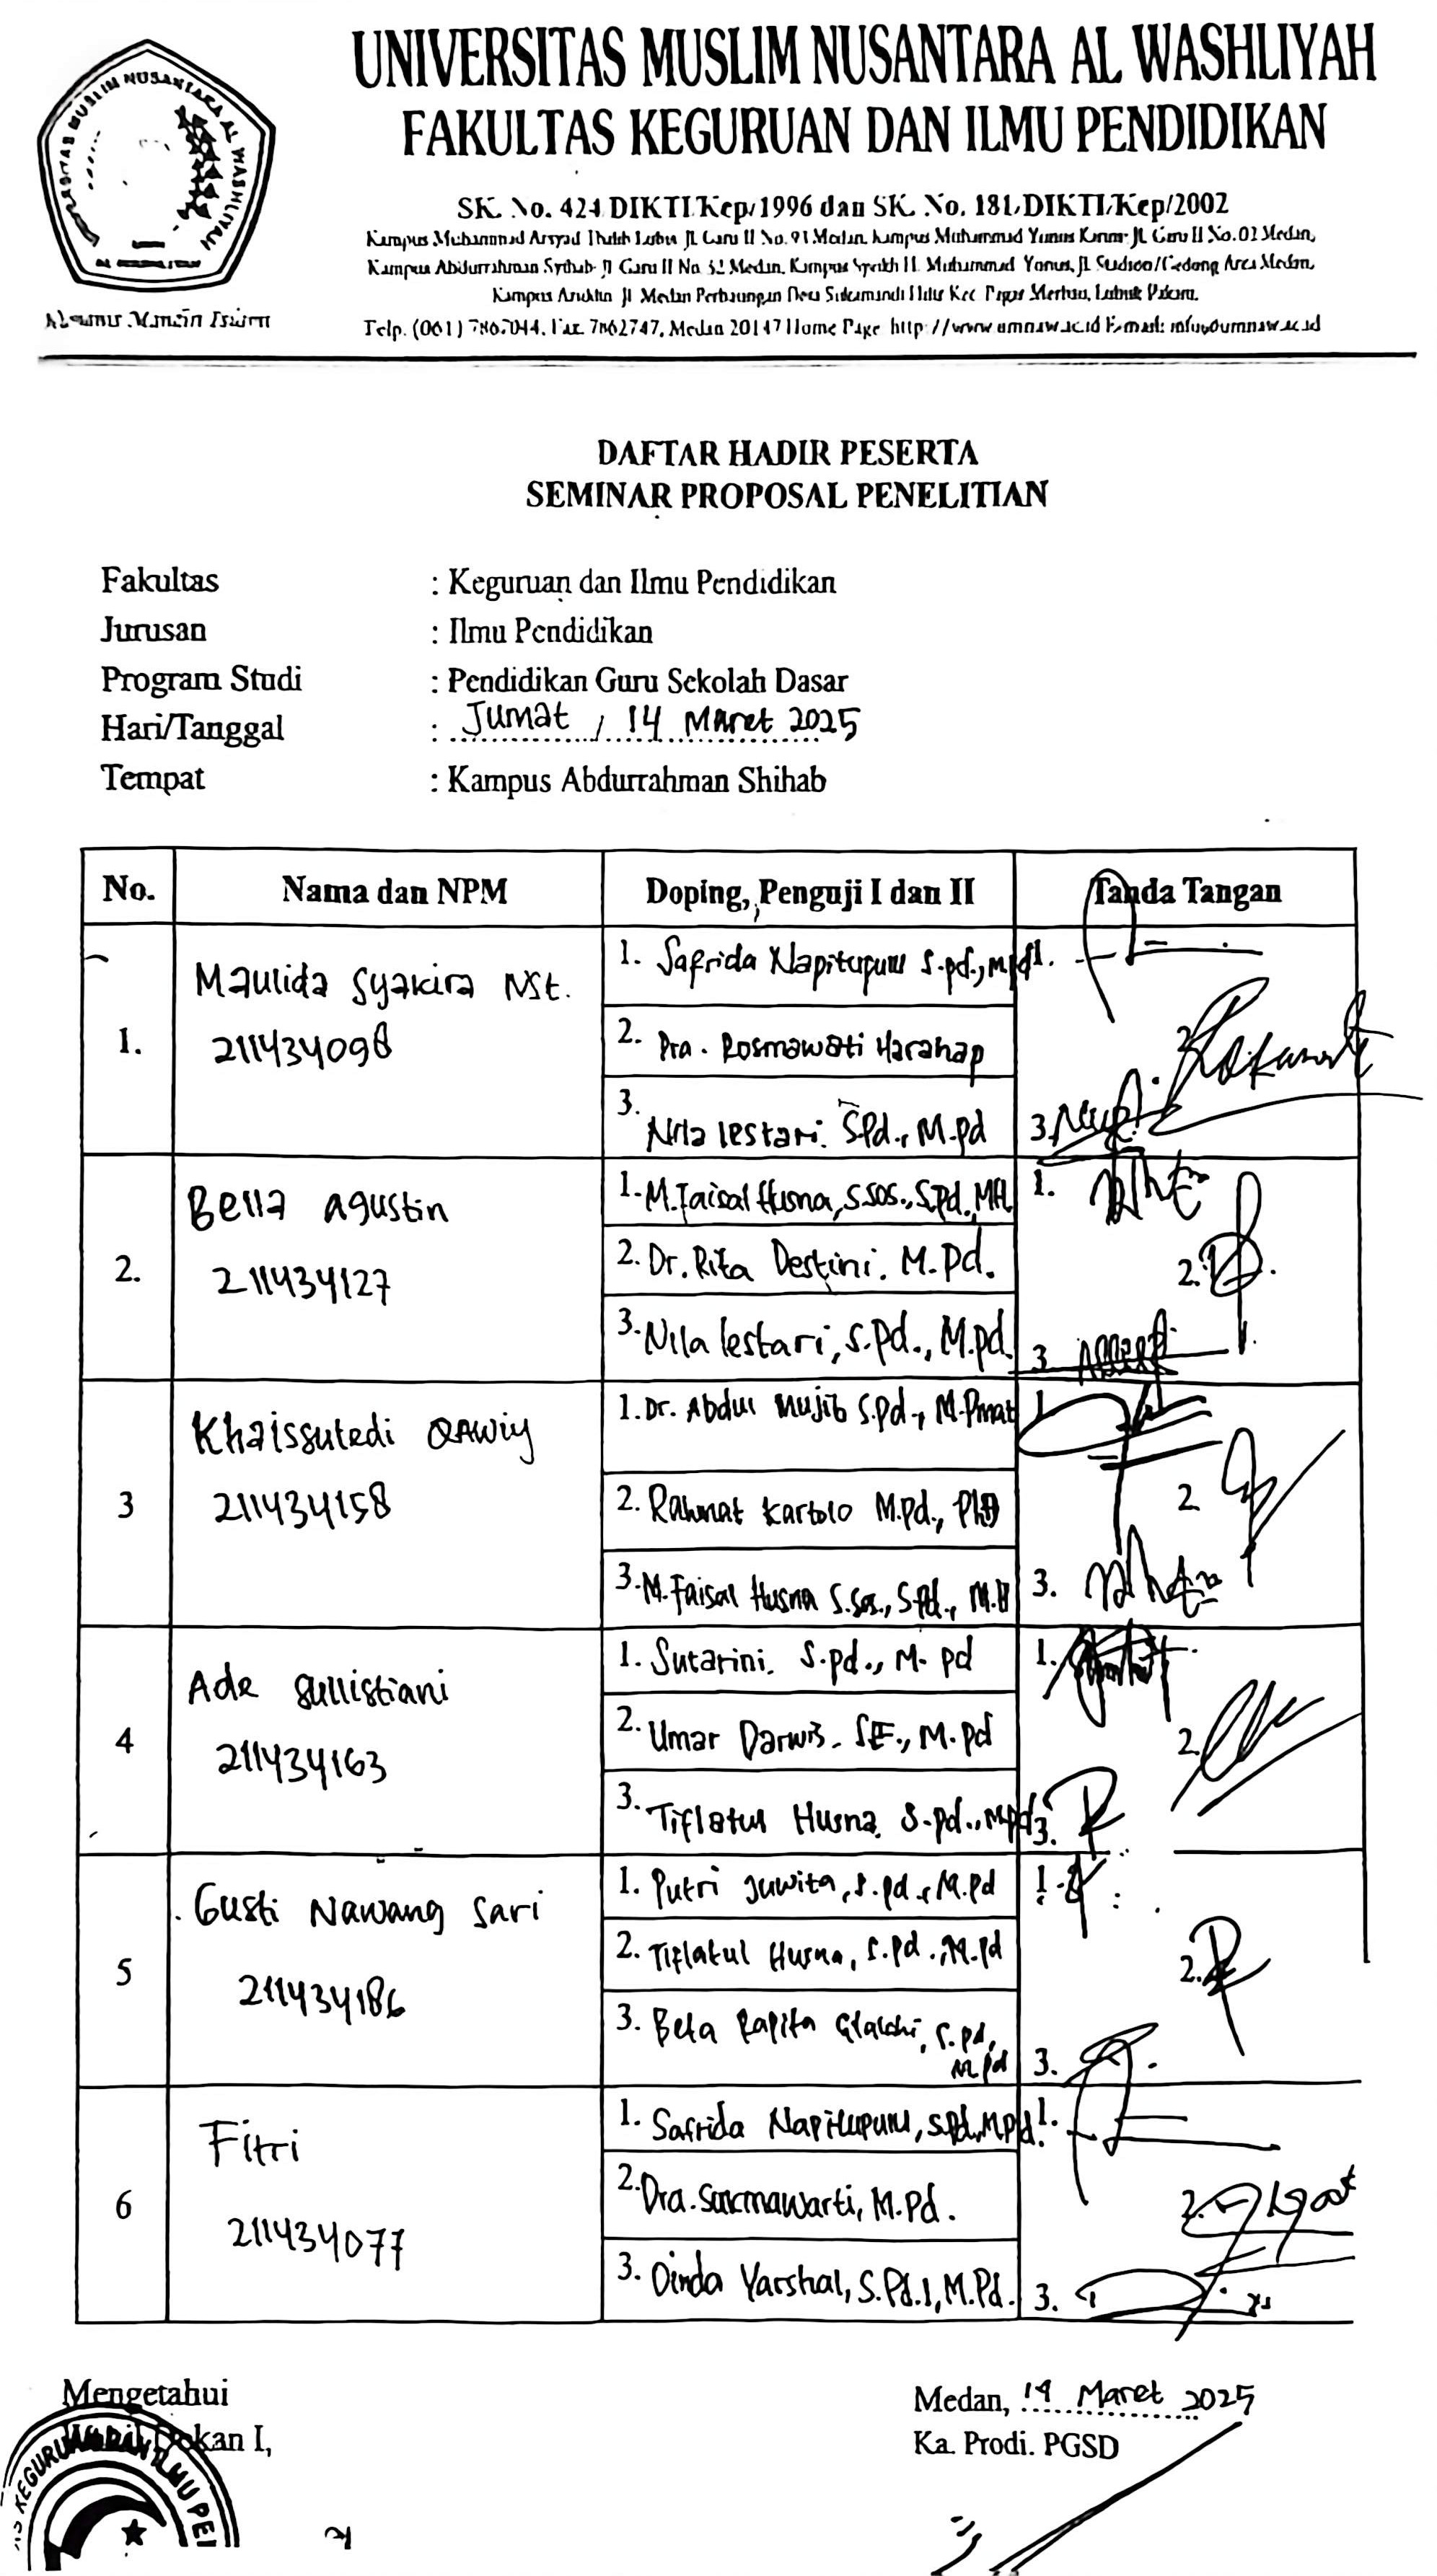 UNIVERSITAS MUSLIM NUSANTARA AL WASHLIYAH
FAKULTAS KEGURUAN DAN ILMU PENDIDIKAN
SK. No. 424 DIKTI/Kep/1996 dan SK. No. 181/DIKTI/Kep/2002
Kampus Muhammad Arsyad Thalib Lubis Jl. Garu II No. 93 Medan, Kampus Muhammad Yunus Karim Jl. Garu II No. 02 Medan,
Kampus Abdurrahman Syihab Jl Garu II No 52 Medan, Kampus Syeikh H. Muhammad Yunus, Jl. Stadion/Gedung Arca Medan,
Kampus Jl Medan Perbaungan Desa Sukamandi Hilir Kec Pagar Merbau, Lubuk Pakam.
Telp. (061) 7867044, Fax. 7862747, Medan 20147 Home Page http://www.umnaw.ac.id E-mail: info@umnaw.ac.id
DAFTAR HADIR PESERTA
SEMINAR PROPOSAL PENELITIAN
Fakultas : Keguruan dan Ilmu Pendidikan
Jurusan : Ilmu Pendidikan
Program Studi : Pendidikan Guru Sekolah Dasar
Hari/Tanggal : Jumat, 14 Maret 2025
Tempat : Kampus Abdurrahman Shihab
No. Nama dan NPM Doping, Penguji I dan II Tanda Tangan
1. Maulida Syakira Nst.
211434098
1. Safrida Napitupulu S.pd., M.pd 1.
2. Dra. Rosmawati Harahap 2.
3. Nila lestari. S.Pd., M.pd 3.
2. Bella agustin
211434127
1. M. Faisal Husna, S.Sos., S.Pd., MH 1.
2. Dr. Rita Destini. M.Pd. 2.
3. Nila lestari, S.Pd., M.pd. 3.
3 Khaissutedi QAwiy
211434158
1. Dr. Abdul Mujib S.Pd., M.Pmat 1
2. Rahmat Kartolo M.Pd., PhD 2
3. M. Faisal Husna S.Sos., S.Pd., M.H 3.
4 Ade Sullistiani
211434163
1. Sutarini. S.pd., M. pd 1.
2. Umar Darwis. SE., M.pd 2.
3. Tiflatul Husna. S.pd., M.pd 3.
5 Gusti Nawang Sari
211434186
1. Putri Juwita, S.pd., M.pd 1.
2. Tiflatul Husna, S.pd., M.pd 2.
3. Beta Rapita S.pd,
M.pd 3.
6 Fitri
211434077
1. Safrida Napitupulu, S.Pd, M.pd. 1.
2. Dra. Sukmawarti, M.Pd. 2.
3. Dinda Yarshal, S.Pd.I, M.Pd. 3.
Mengetahui
Wakil Dekan I,
Medan, 14 Maret 2025
Ka. Prodi. PGSD